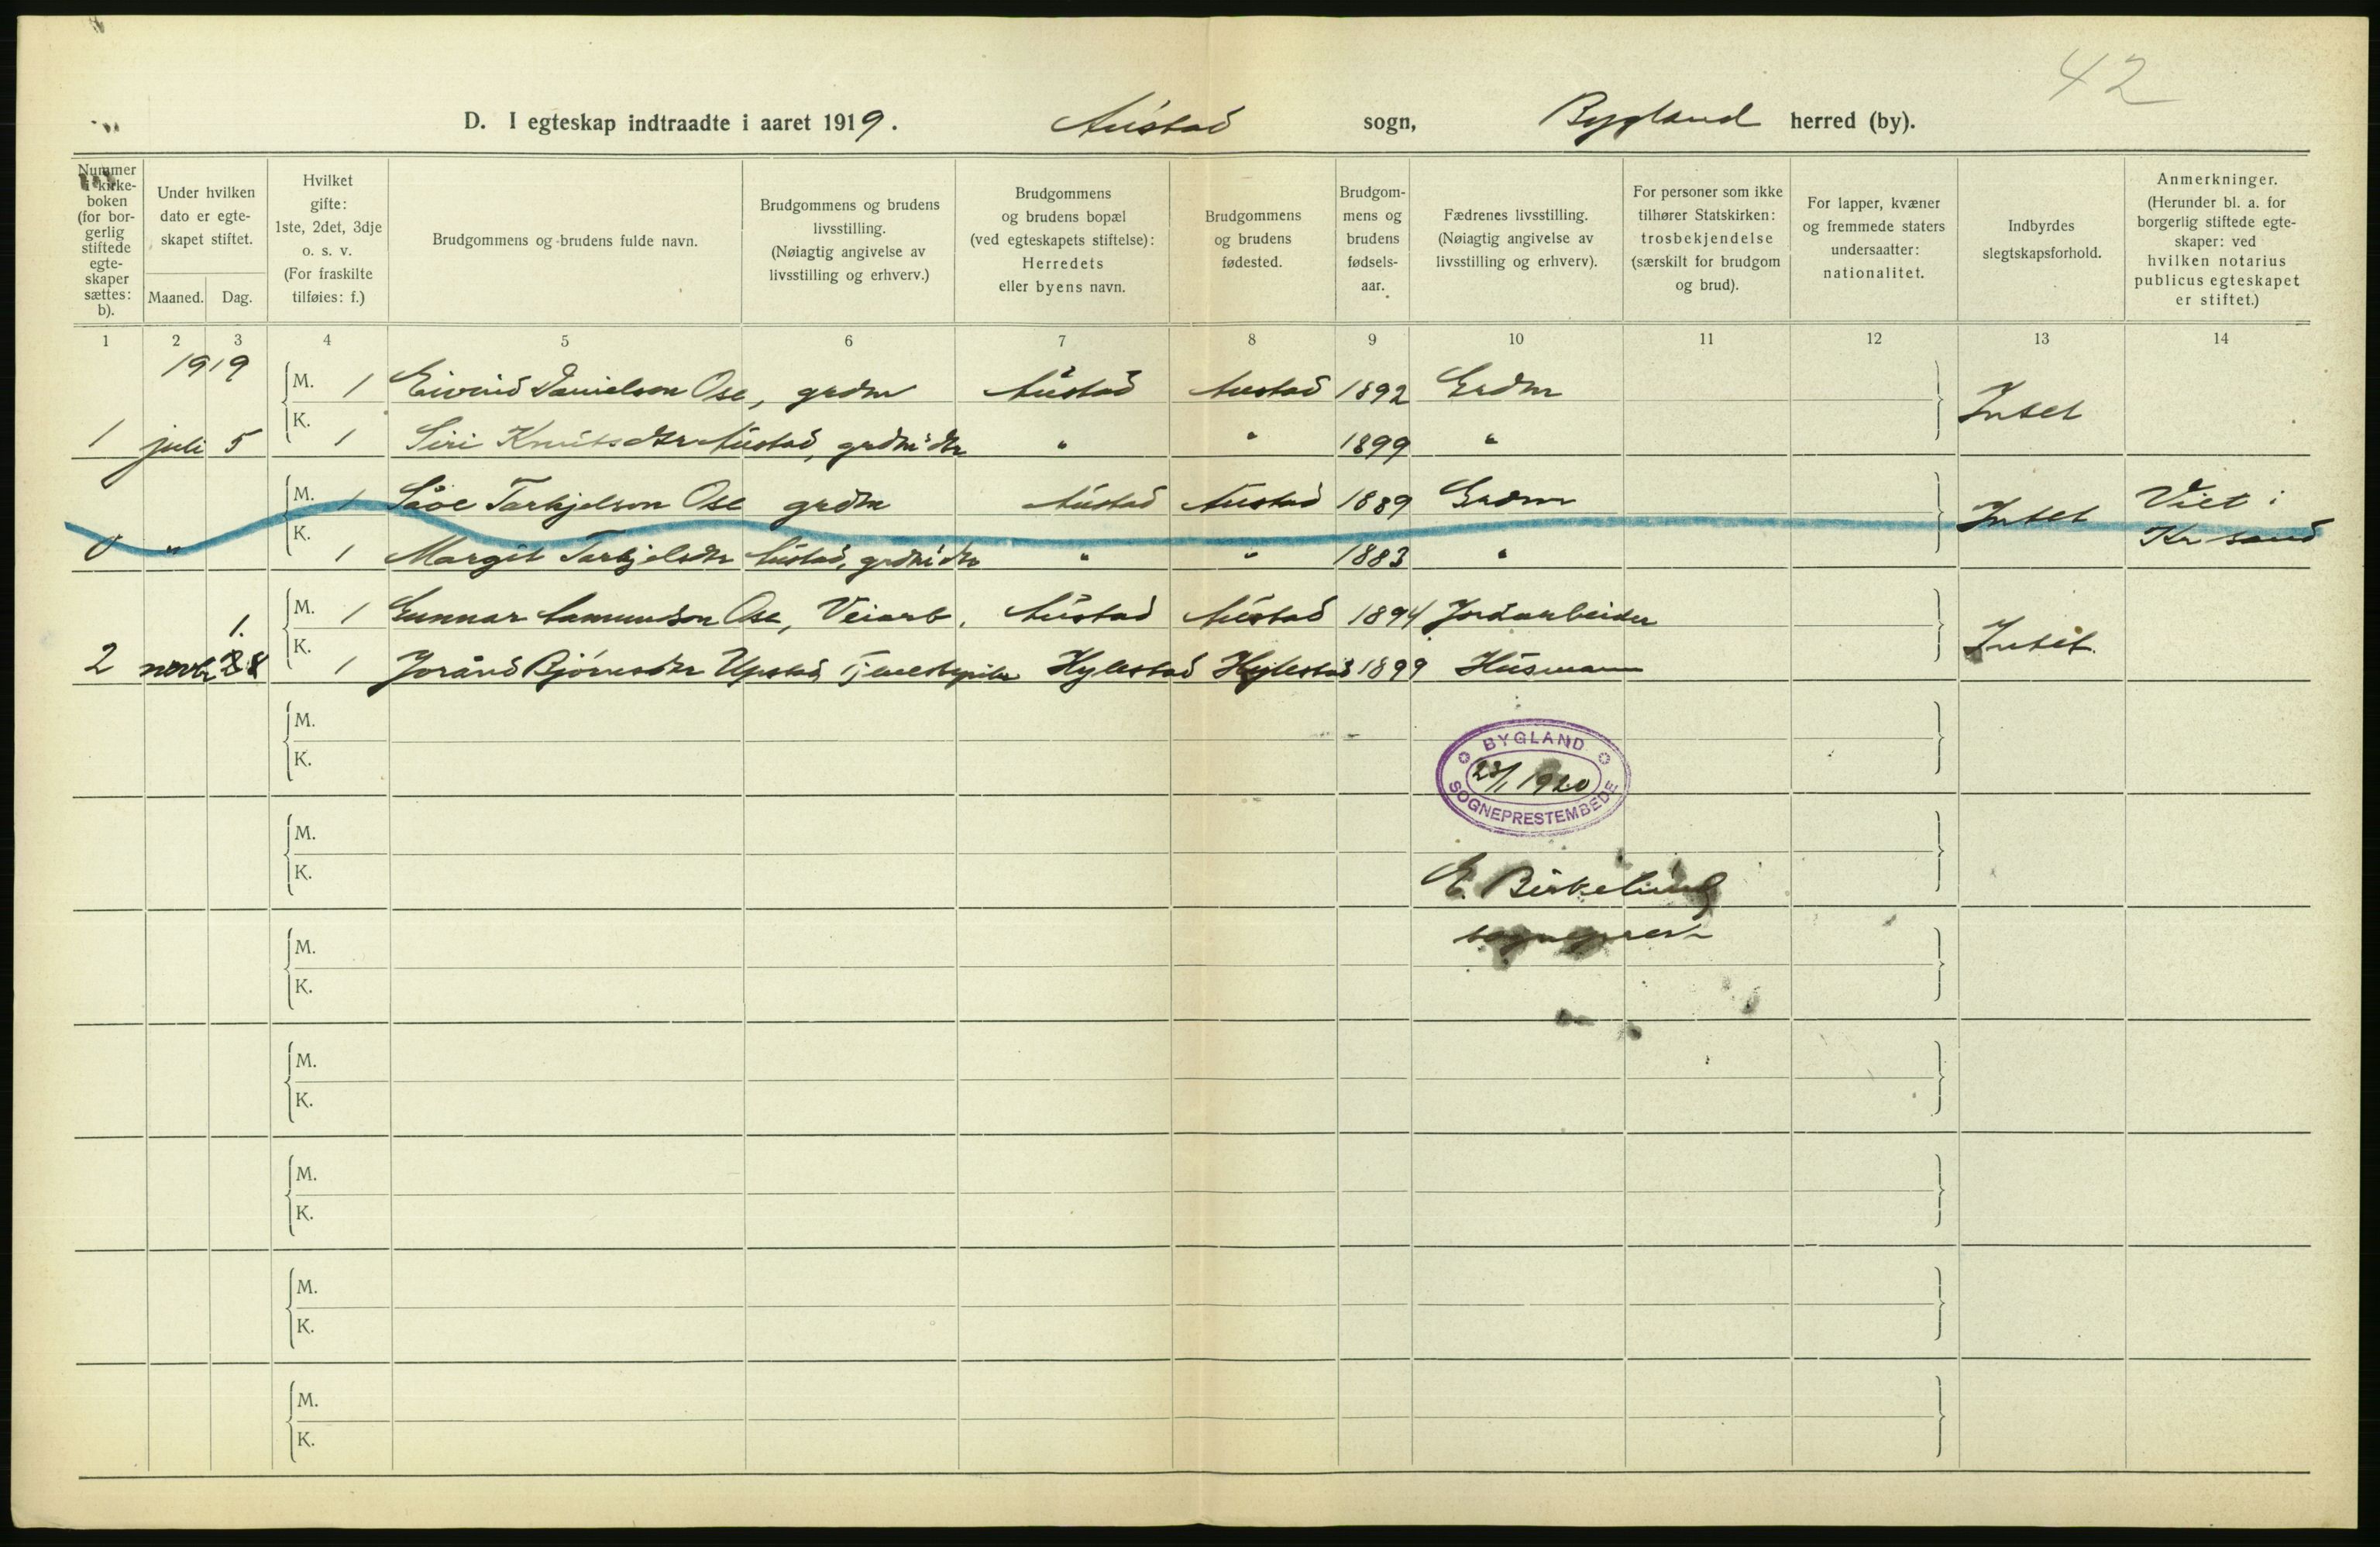 42
D. I egteskap indtraadte i aaret 1919. Austad sogn, Bygland herred (by).
Nummer i kirke-boken (for bor-gerlig stiftede egte-skaper sættes: b).
Under hvilken dato er egte-skapet stiftet.
Maaned. Dag.
Hvilket gifte: 1ste, 2det, 3dje o. s. v. (For fraskilte tilføies: f.)
Brudgommens og brudens fulde navn.
Brudgommens og brudens livsstilling. (Nøiagtig angivelse av livsstilling og erhverv.)
Brudgommens og brudens bopæl (ved egteskapets stiftelse): Herredets eller byens navn.
Brudgommens og brudens fødested.
Brudgom-mens og brudens fødsels-aar.
Fædrenes livsstilling. (Nøiagtig angivelse av livsstilling og erhverv).
For personer som ikke tilhører Statskirken: trosbekjendelse (særskilt for brudgom og brud).
For lapper, kvæner og fremmede staters undersaatter: nationalitet.
Indbyrdes slegtskapsforhold.
Anmerkninger. (Herunder bl. a. for borgerlig stiftede egte-skaper: ved hvilken notarius publicus egteskapet er stiftet.)
1 2 3 4 5 6 7 8 9 10 11 12 13 14
1919
M. 1 Eivind Danielson Ose, grdm Austad Austad 1892 Grdm Intet
1 juli 5 K. 1 Siri Knutsdtr Austad, grdm'dtr " " 1899 "
M. 1 Såve Tarkjelson Ose grdm Austad Austad 1889 Grdm Intet Viet i
0 " K. 1 Margit Tarkjelsdtr Austad, grdm'dtr " " 1883 " Kr sand
1.
M. 1 Gunnar Aamundson Ose, Veiarb. Austad Austad 1894 Jordarbeider Intet.
2 novbr K. 1 Joránd Bjørnsdtr Upstad, Tjenestepike Hylestad Hylestad 1899 Husmann
M.
K.
BYGLAND
23/1 1920
SOGNEPRESTEMBEDE
M.
K.
E. Birkelund
sogneprest
M.
K.
M.
K.
M.
K.
M.
K.
M.
K.